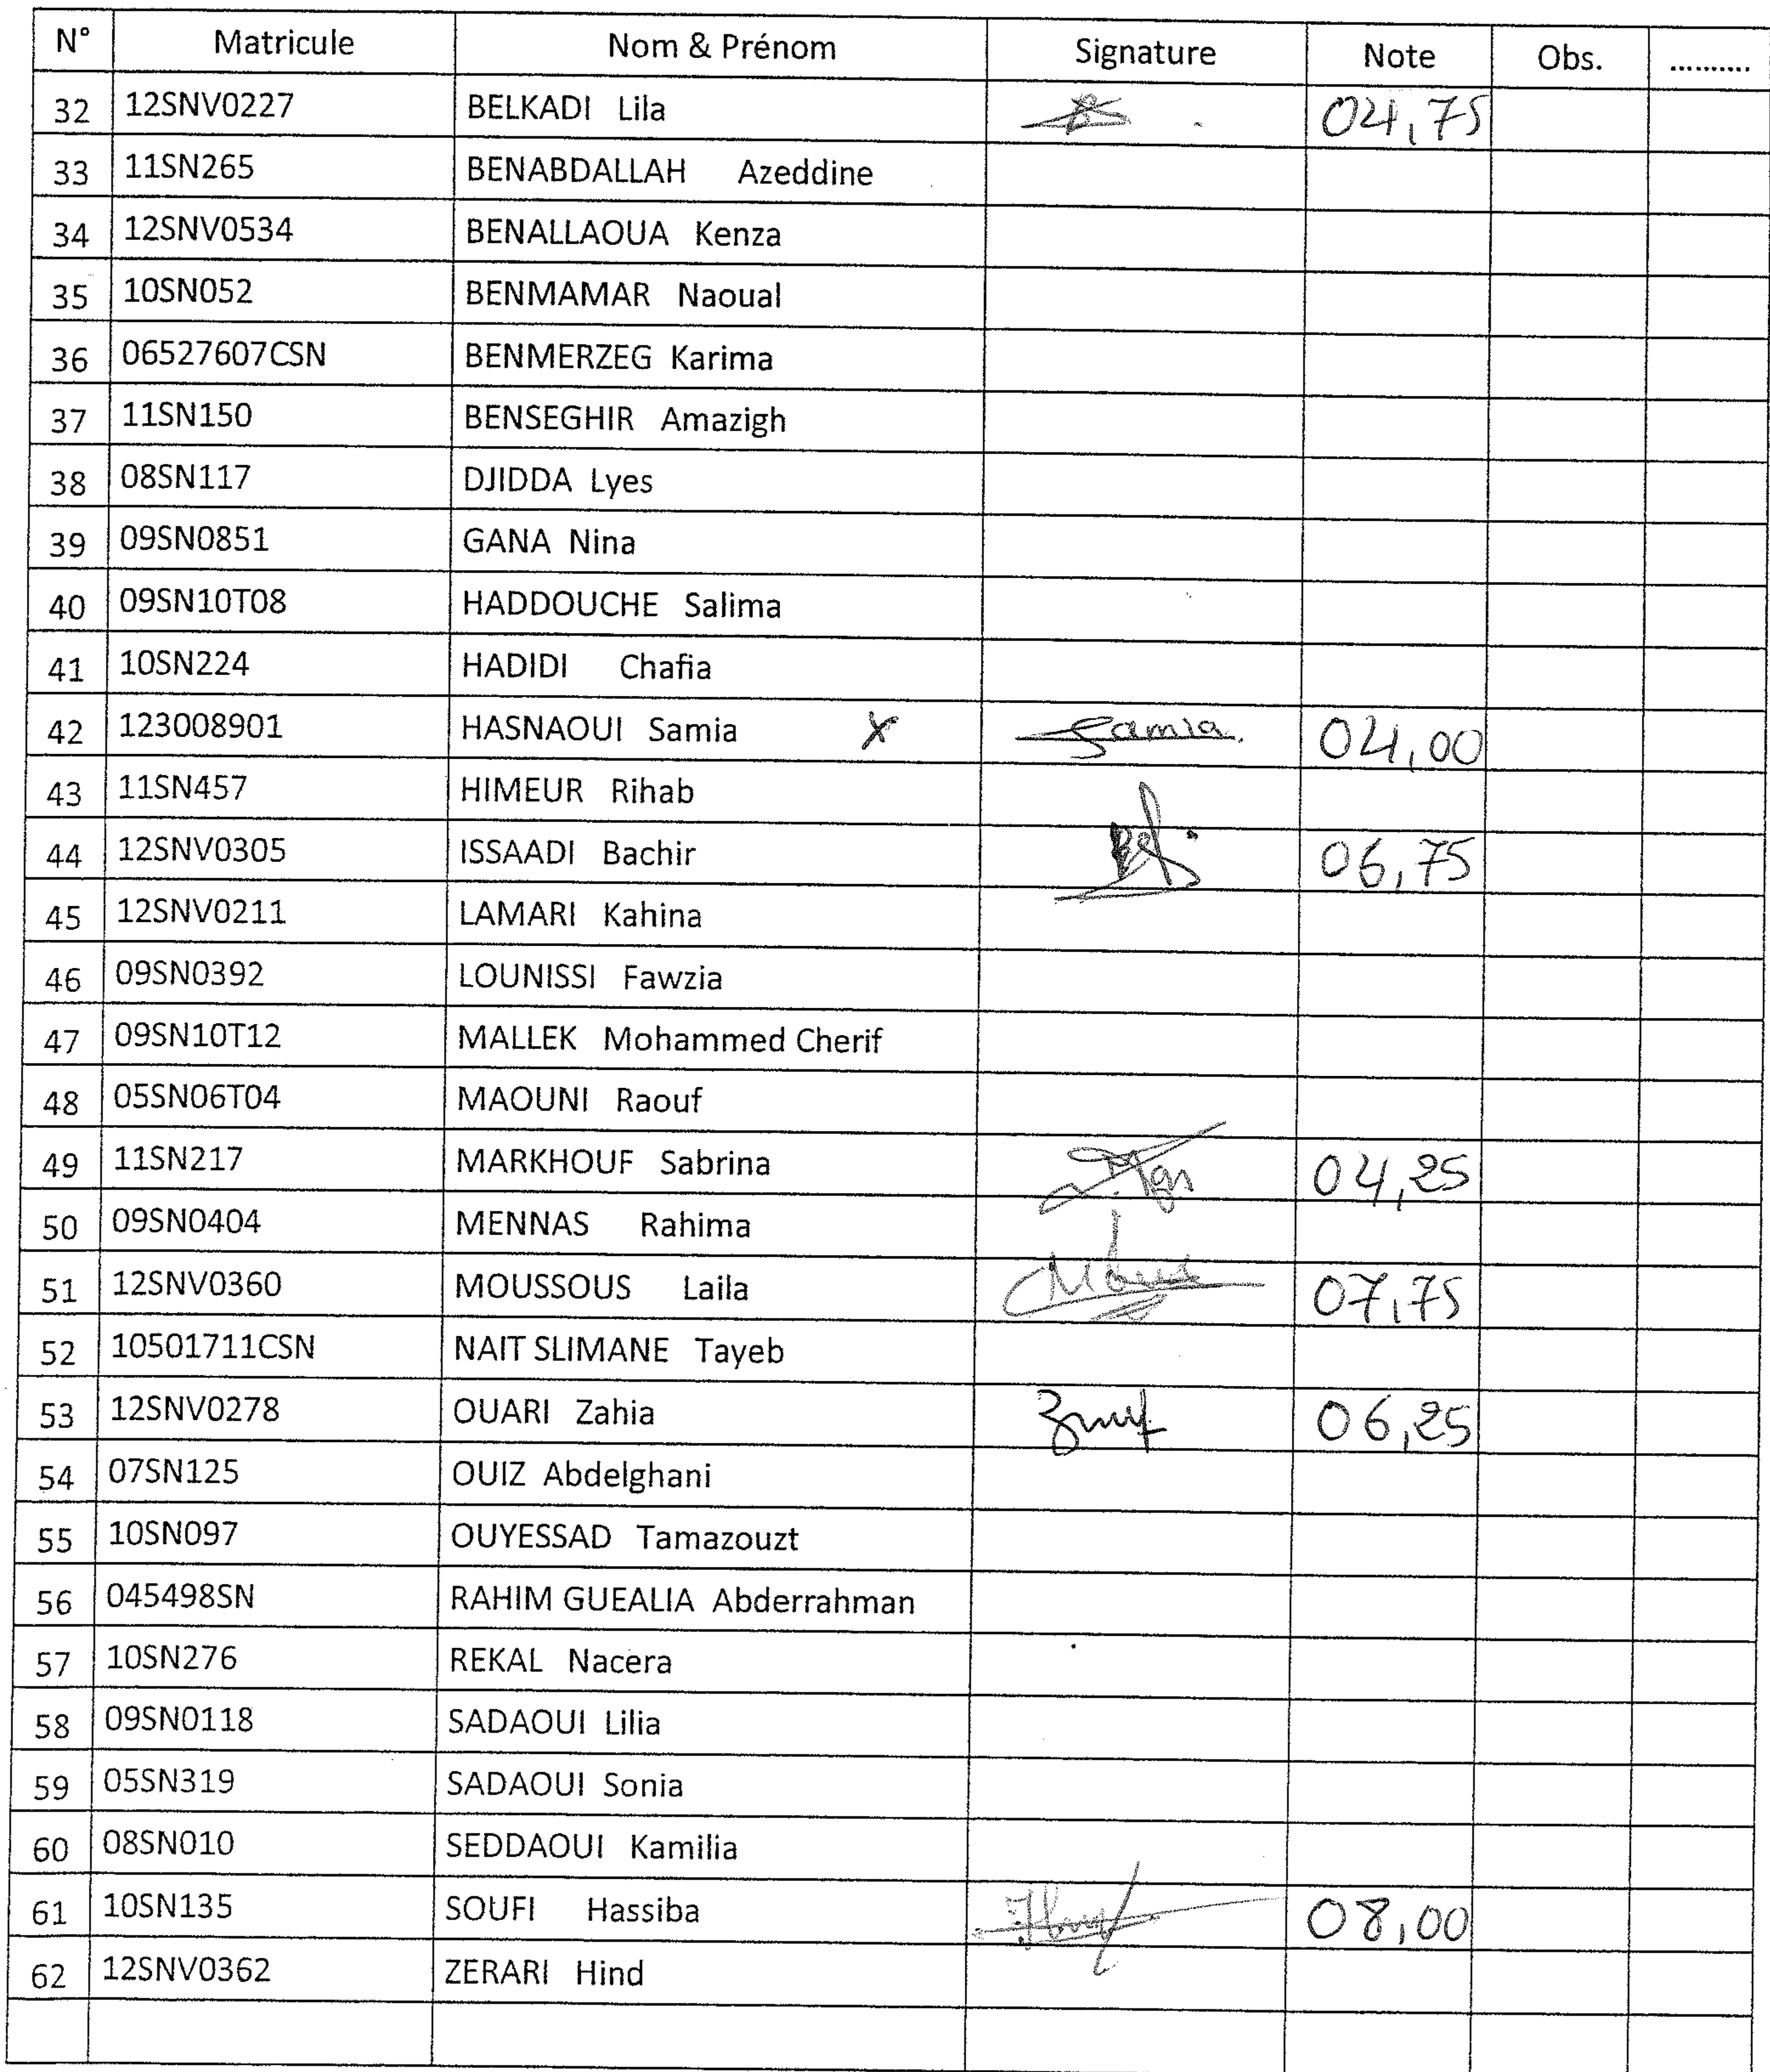 N° Matricule Nom & Prénom Signature Note Obs. ..........
32 12SNV0227 BELKADI Lila 04,75
33 11SN265 BENABDALLAH Azeddine
34 12SNV0534 BENALLAOUA Kenza
35 10SN052 BENMAMAR Naoual
36 06527607CSN BENMERZEG Karima
37 11SN150 BENSEGHIR Amazigh
38 08SN117 DJIDDA Lyes
39 09SN0851 GANA Nina
40 09SN10T08 HADDOUCHE Salima
41 10SN224 HADIDI Chafia
42 123008901 HASNAOUI Samia X Samia 04,00
43 11SN457 HIMEUR Rihab
44 12SNV0305 ISSAADI Bachir 06,75
45 12SNV0211 LAMARI Kahina
46 09SN0392 LOUNISSI Fawzia
47 09SN10T12 MALLEK Mohammed Cherif
48 05SN06T04 MAOUNI Raouf
49 11SN217 MARKHOUF Sabrina 04,25
50 09SN0404 MENNAS Rahima
51 12SNV0360 MOUSSOUS Laila 07,75
52 10501711CSN NAIT SLIMANE Tayeb
53 12SNV0278 OUARI Zahia 06,25
54 07SN125 OUIZ Abdelghani
55 10SN097 OUYESSAD Tamazouzt
56 045498SN RAHIM GUEALIA Abderrahman
57 10SN276 REKAL Nacera
58 09SN0118 SADAOUI Lilia
59 05SN319 SADAOUI Sonia
60 08SN010 SEDDAOUI Kamilia
61 10SN135 SOUFI Hassiba 08,00
62 12SNV0362 ZERARI Hind